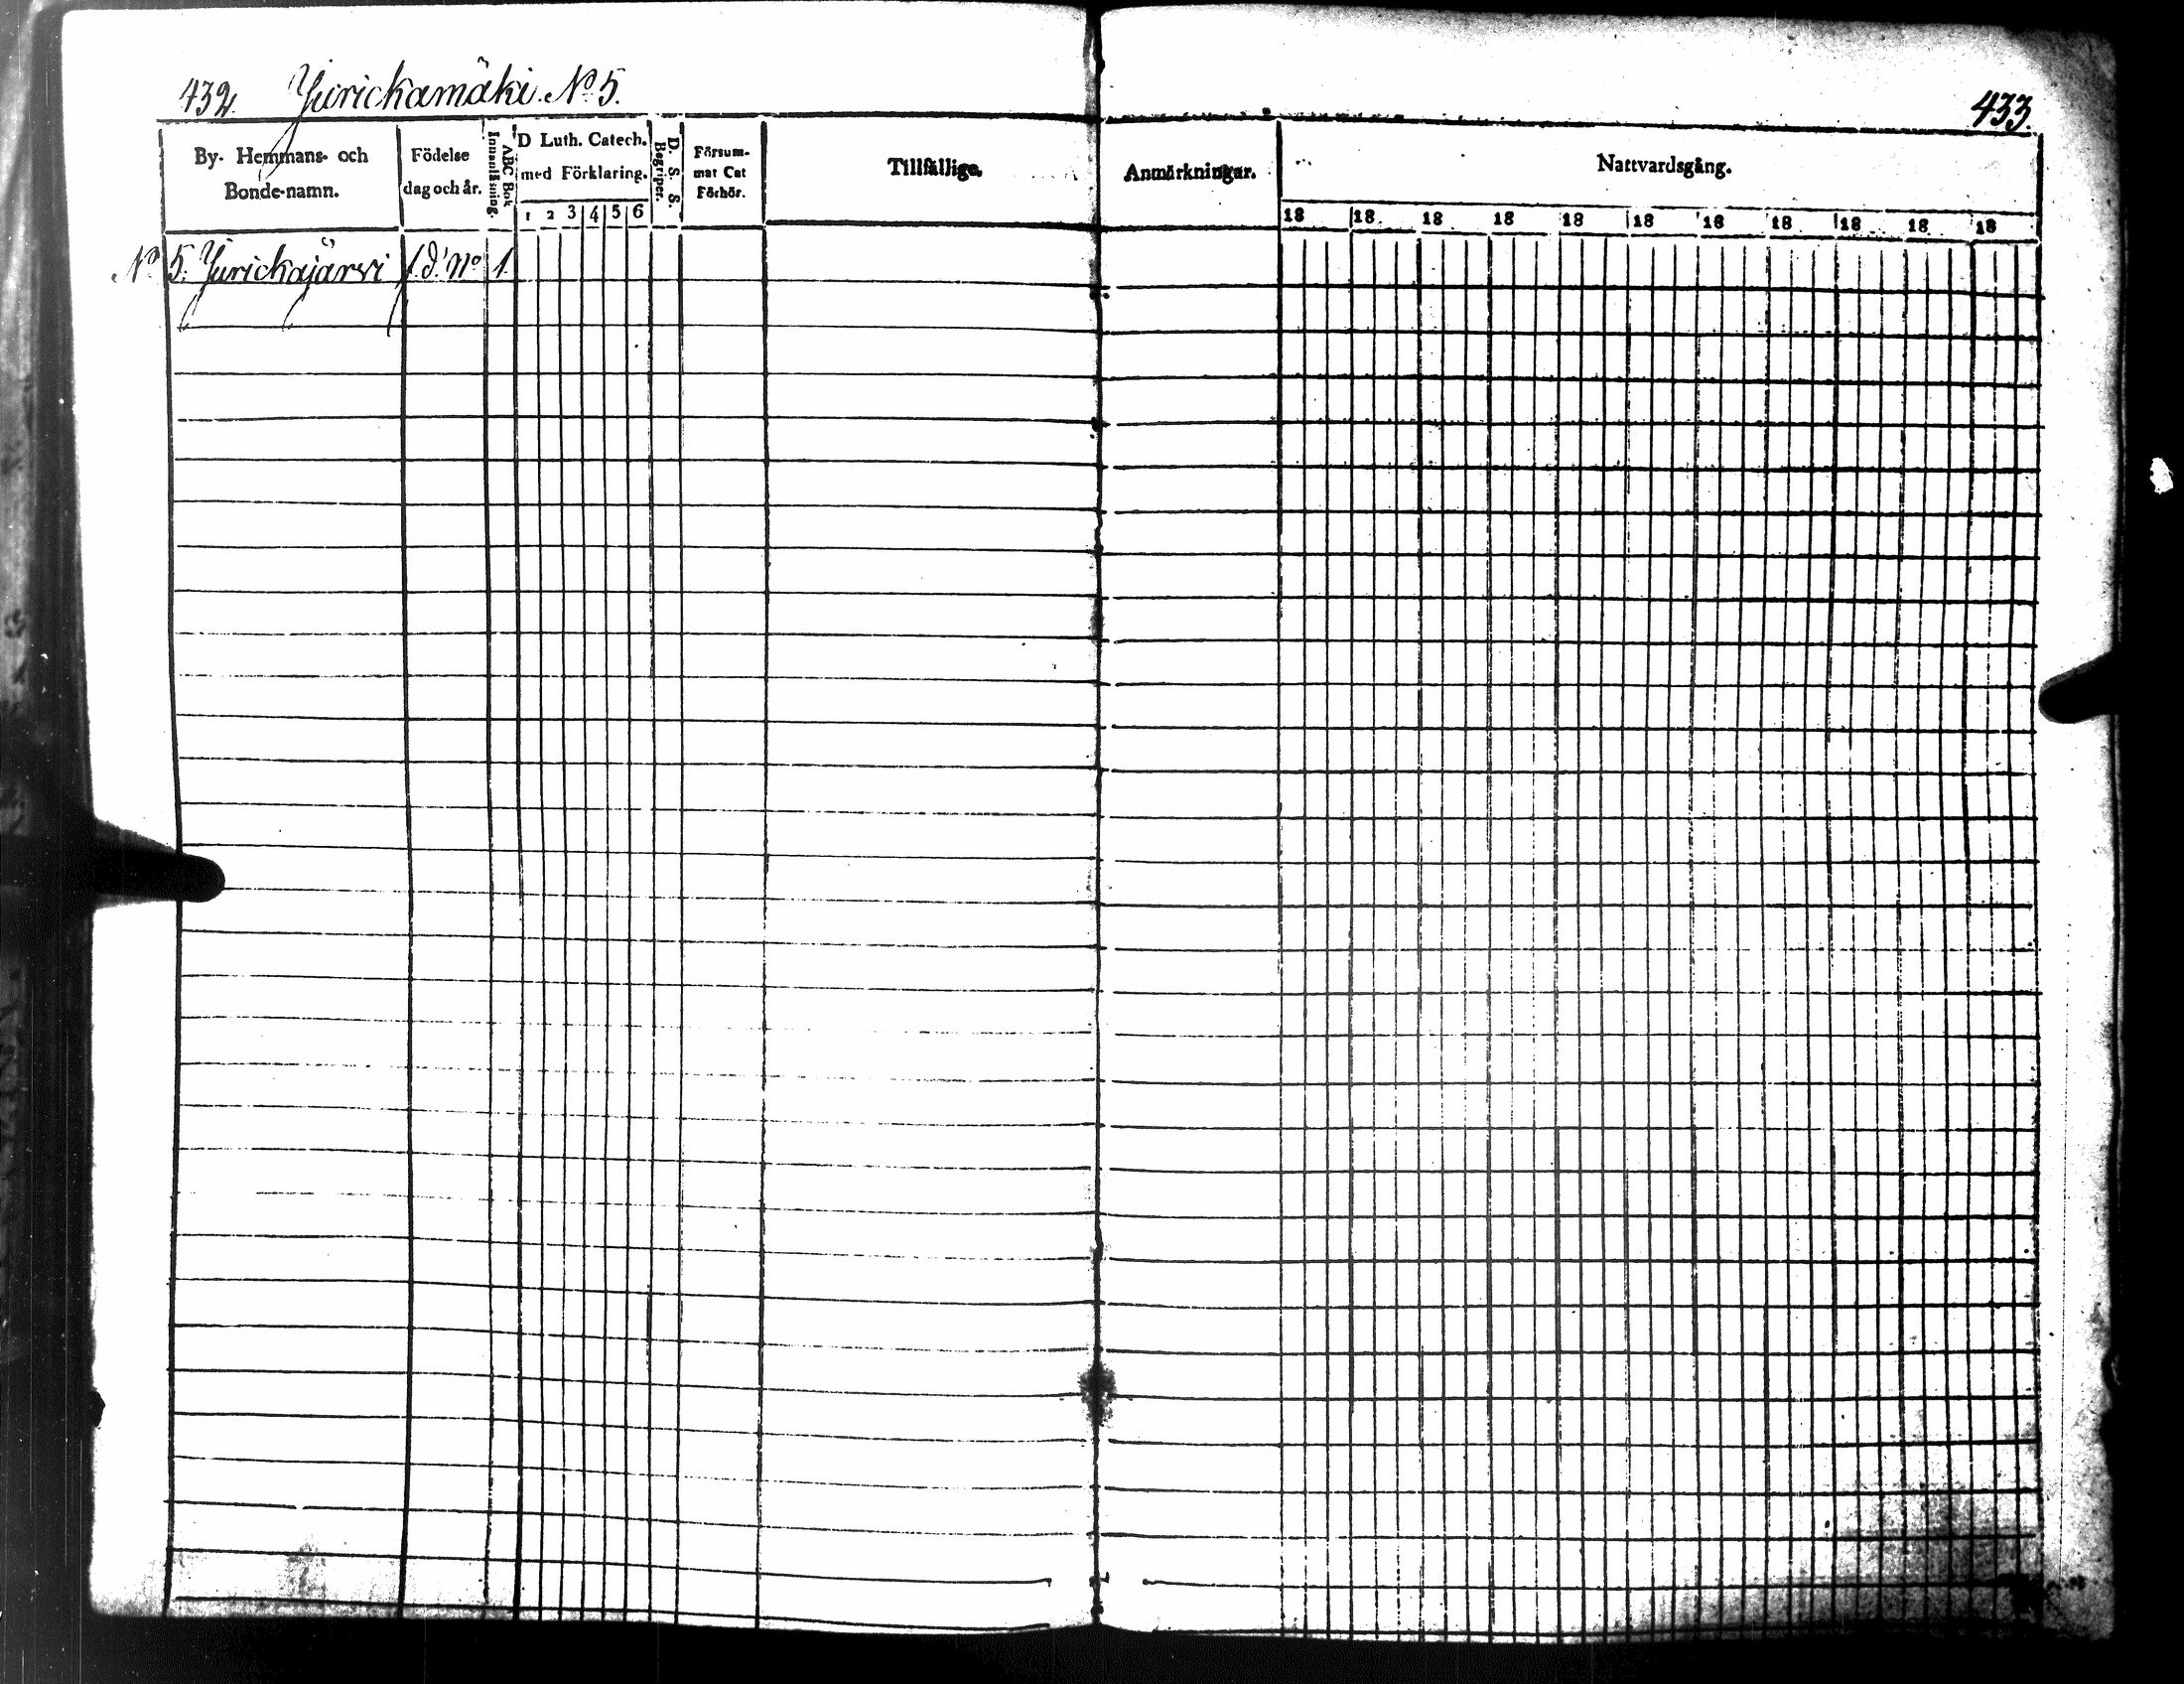 432. Jurickamäki. No 5.
433.
By- Hemmans- och Bonde-namn.
Födelse dag och år.
Innanläsning.
ABC Bok
D Luth. Catech. med Förklaring.
1 2 3 4 5 6
D. S. S. Begriper.
Försum- mat Cat Förhör.
Tillfällige.
Anmärkningar.
Nattvardsgång.
18 18 18 18 18 18 18 18 18 18 18
No 5. Jurickajärvi No 1.